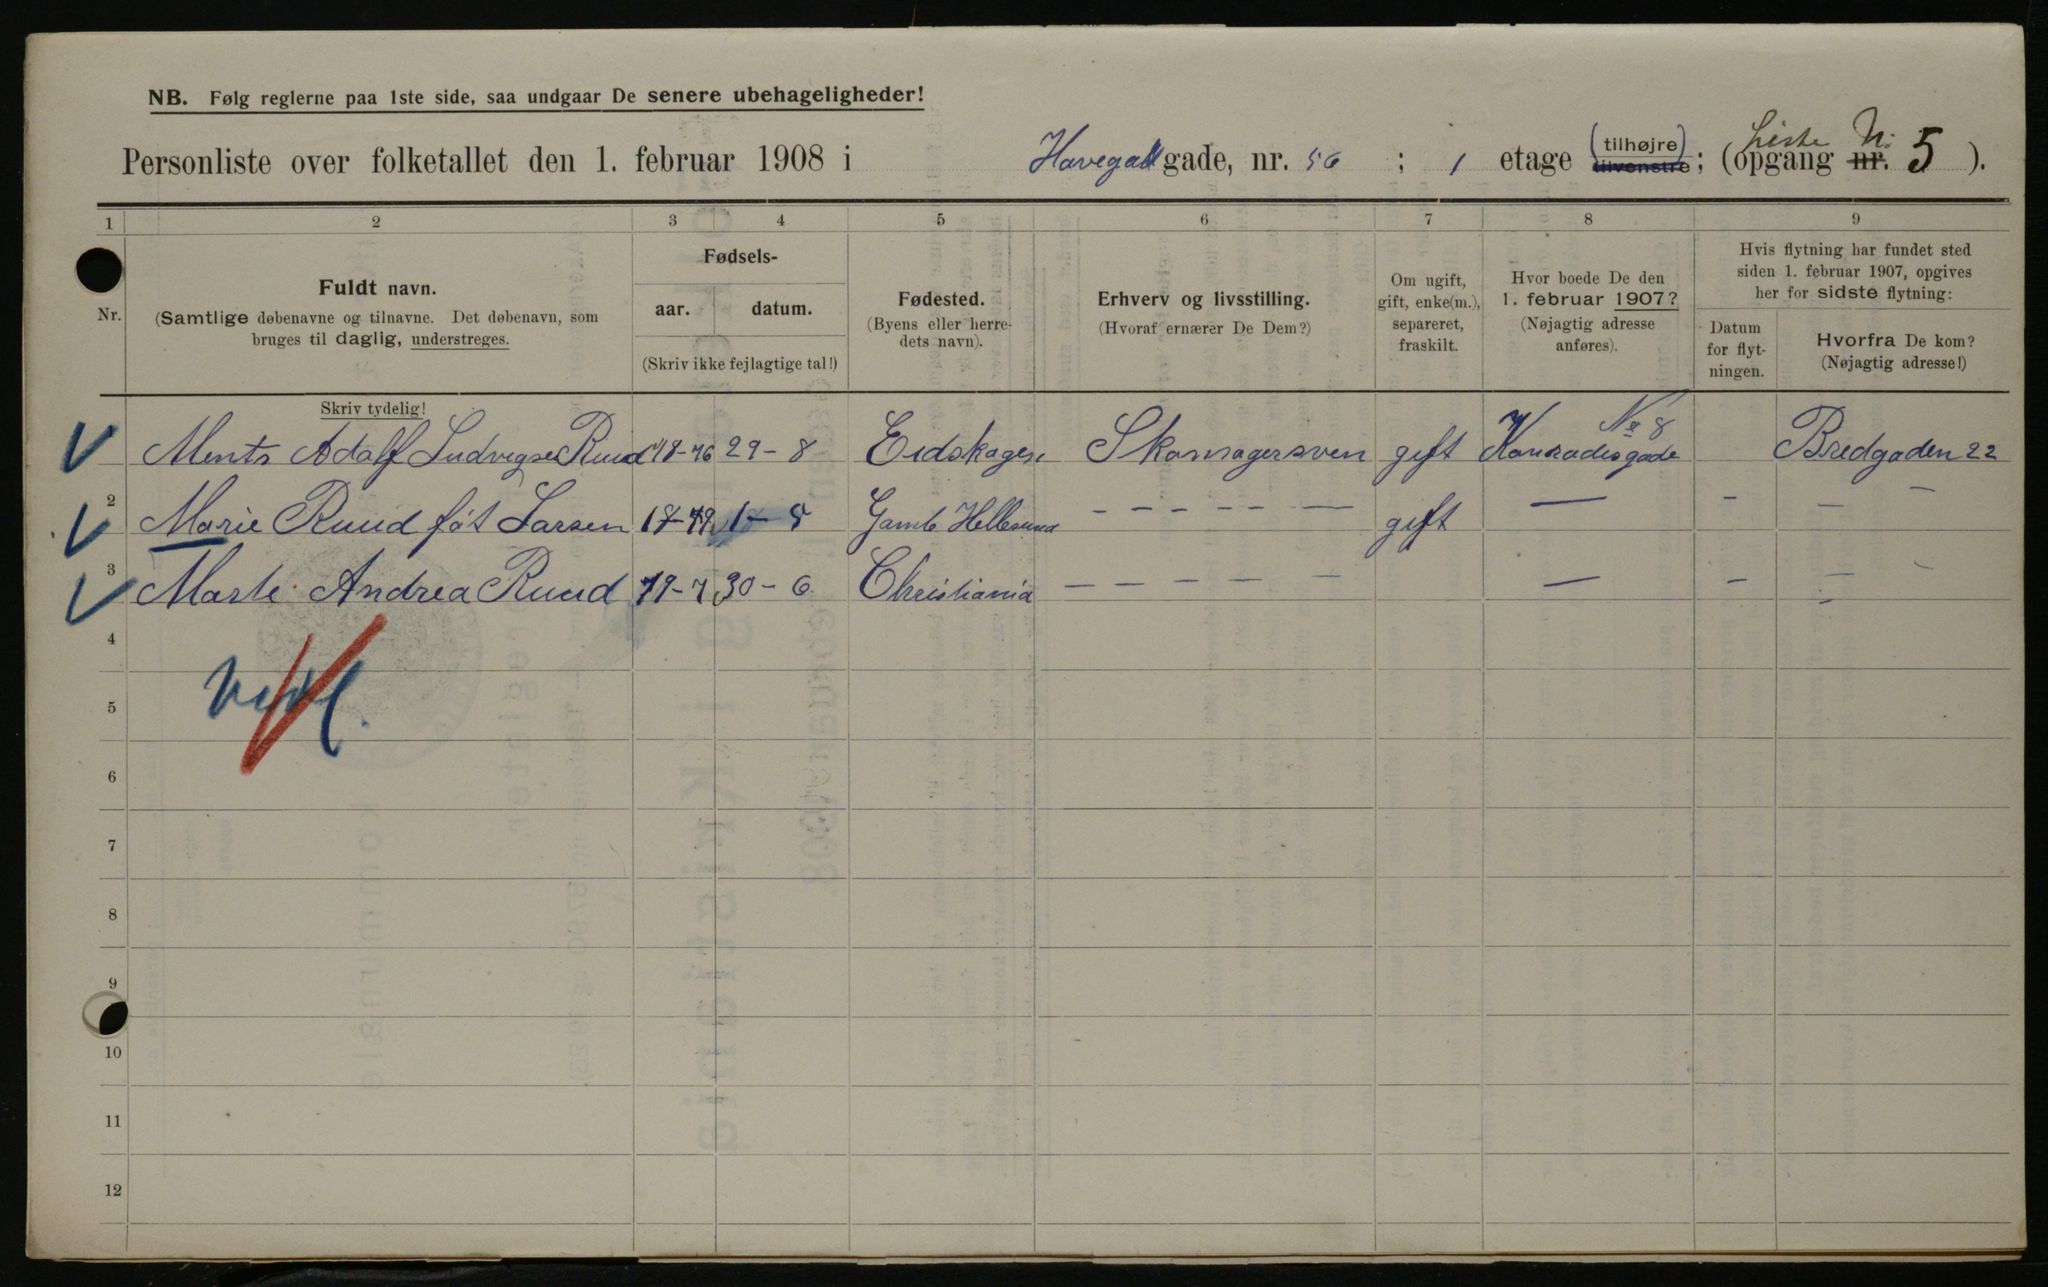 NB. Følg reglerne paa 1ste side, saa undgaar De senere ubehageligheder!
Personliste over folketallet den 1. februar 1908 i Havegad gade, nr. 56 ; 1 etage (tilhøjre) tilvenstre ; (opgang nr. Liste Nr. 5 ).
1 2 3 4 5 6 7 8 9
Nr.
Fuldt navn.
(Samtlige døbenavne og tilnavne. Det døbenavn, som
bruges til daglig, understreges.
Fødsels-
aar. datum.
(Skriv ikke fejlagtige tal!)
Fødested.
(Byens eller herre-
dets navn).
Erhverv og livsstilling.
(Hvoraf ernærer De Dem?)
Om ugift,
gift, enke(m.),
separeret,
fraskilt.
Hvor boede De den
1. februar 1907?
(Nøjagtig adresse
anføres).
Hvis flytning har fundet sted
siden 1. februar 1907, opgives
her for sidste flytning:
Datum
for flyt-
ningen.
Hvorfra De kom?
(Nøjagtig adresse!)
Skriv tydelig!
Ments Adolf Ludvigsen Ruud 18-76 29-8 Eidskogen Skomagersven gift Konradisgade No 8 Bredgaden 22
2 Marie Ruud føt Larsen 18-79 1-8 Gamle Hellesund - - - - - — gift — - — —
3 Marte Andrea Ruud 19-7 30-6 Christiania — - - - - — — - — —
4
5
6
7
8
9
10
11
12